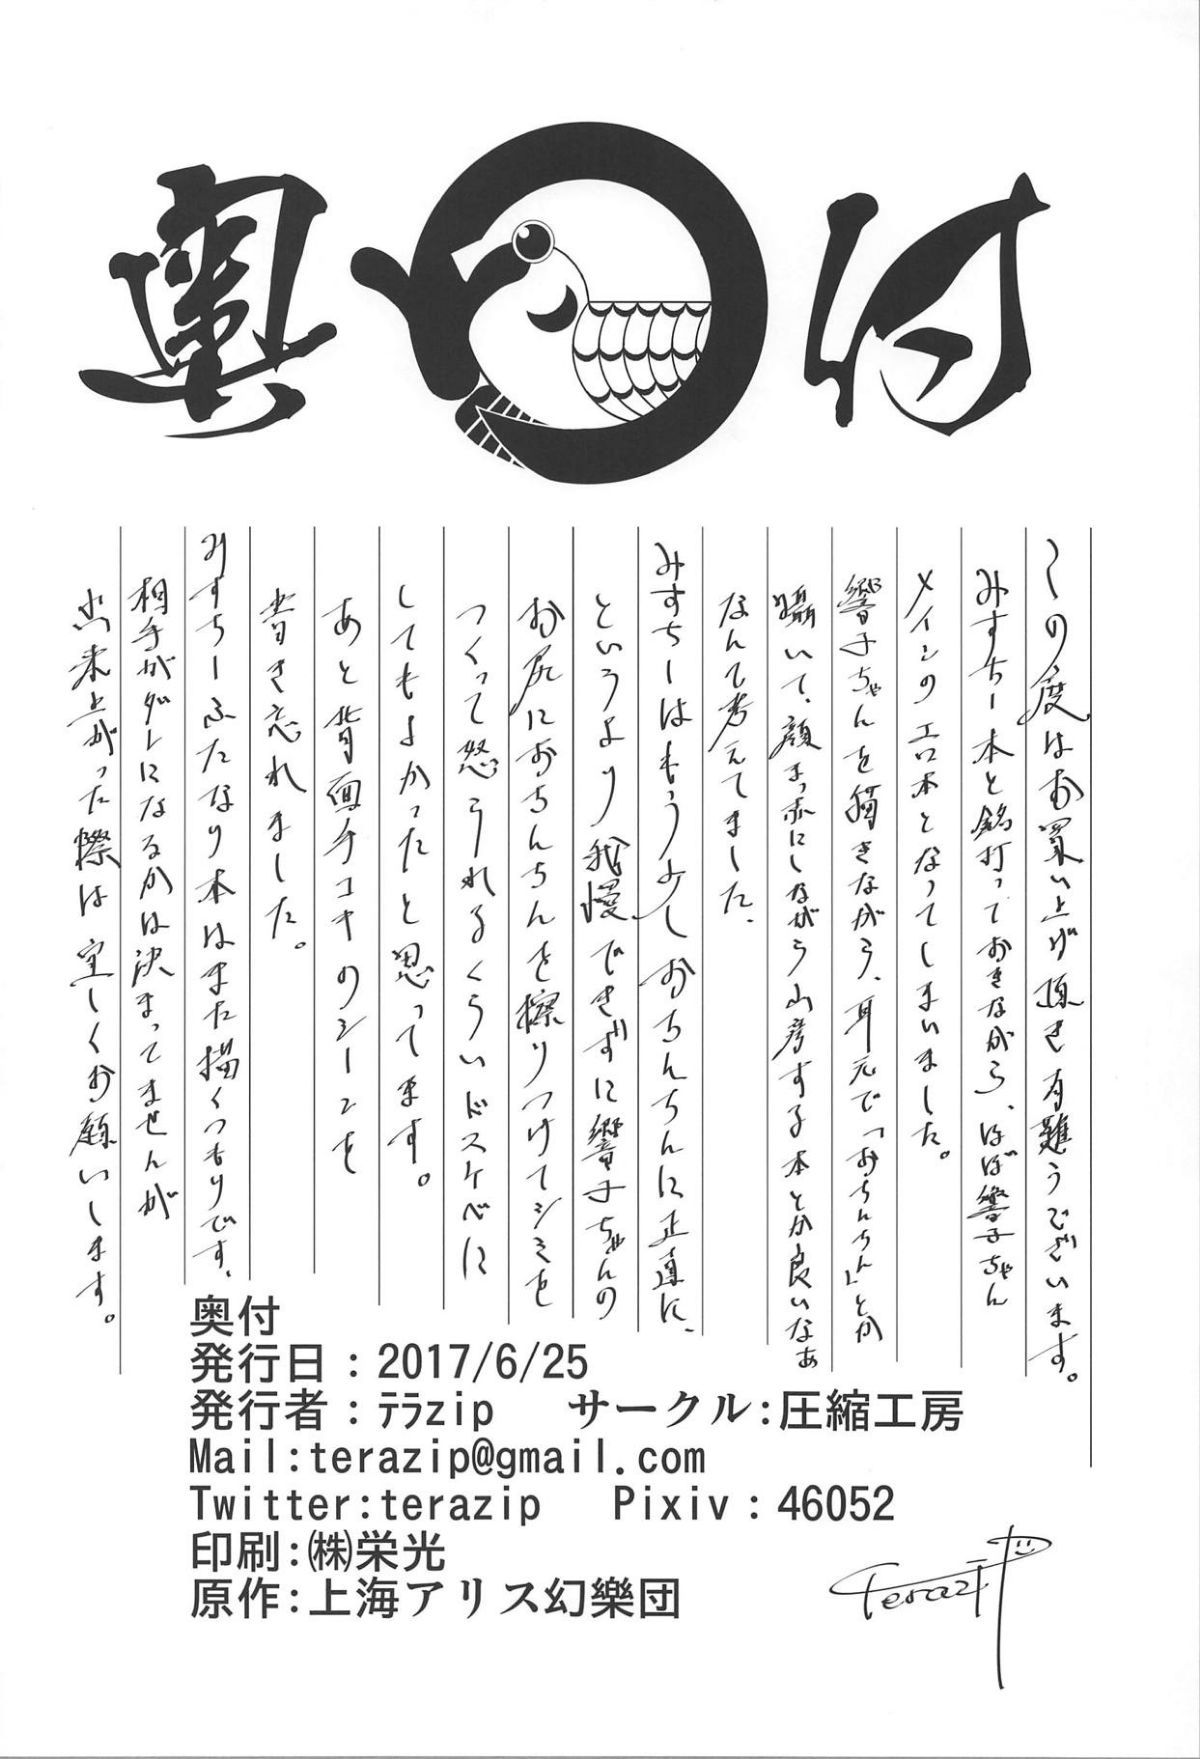 奥付
この度はお買い上げ頂き有難うございます。
みすちー本と銘打っておきながら、ほぼ響子ちゃん
メインのエロ本となってしまいました。
響子ちゃんを描きながら、耳元で「おちんちん」とか
囁いて、顔まっ赤にしながら山彦する本とか良いなぁ
なんて考えてました、
みすちーはもう少しおちんちんに正直に、
というより我慢できずに響子ちゃんの
お尻におちんちんを擦りつけてシミを
つくって怒られるくらいドスケベに
してもよかったと思ってます。
あと背面手コキのシーンを
書き忘れました。
みすちーふたなり本はまた描くつもりです、
相手がダレになるかは決まってませんが
出来上がった際は宜しくお願いします。
奥付
発行日：2017/6/25
発行者：ﾃﾗzip　サークル:圧縮工房
Mail:terazip@gmail.com
Twitter:terazip　Pixiv：46052
印刷:㈱栄光
原作:上海アリス幻樂団